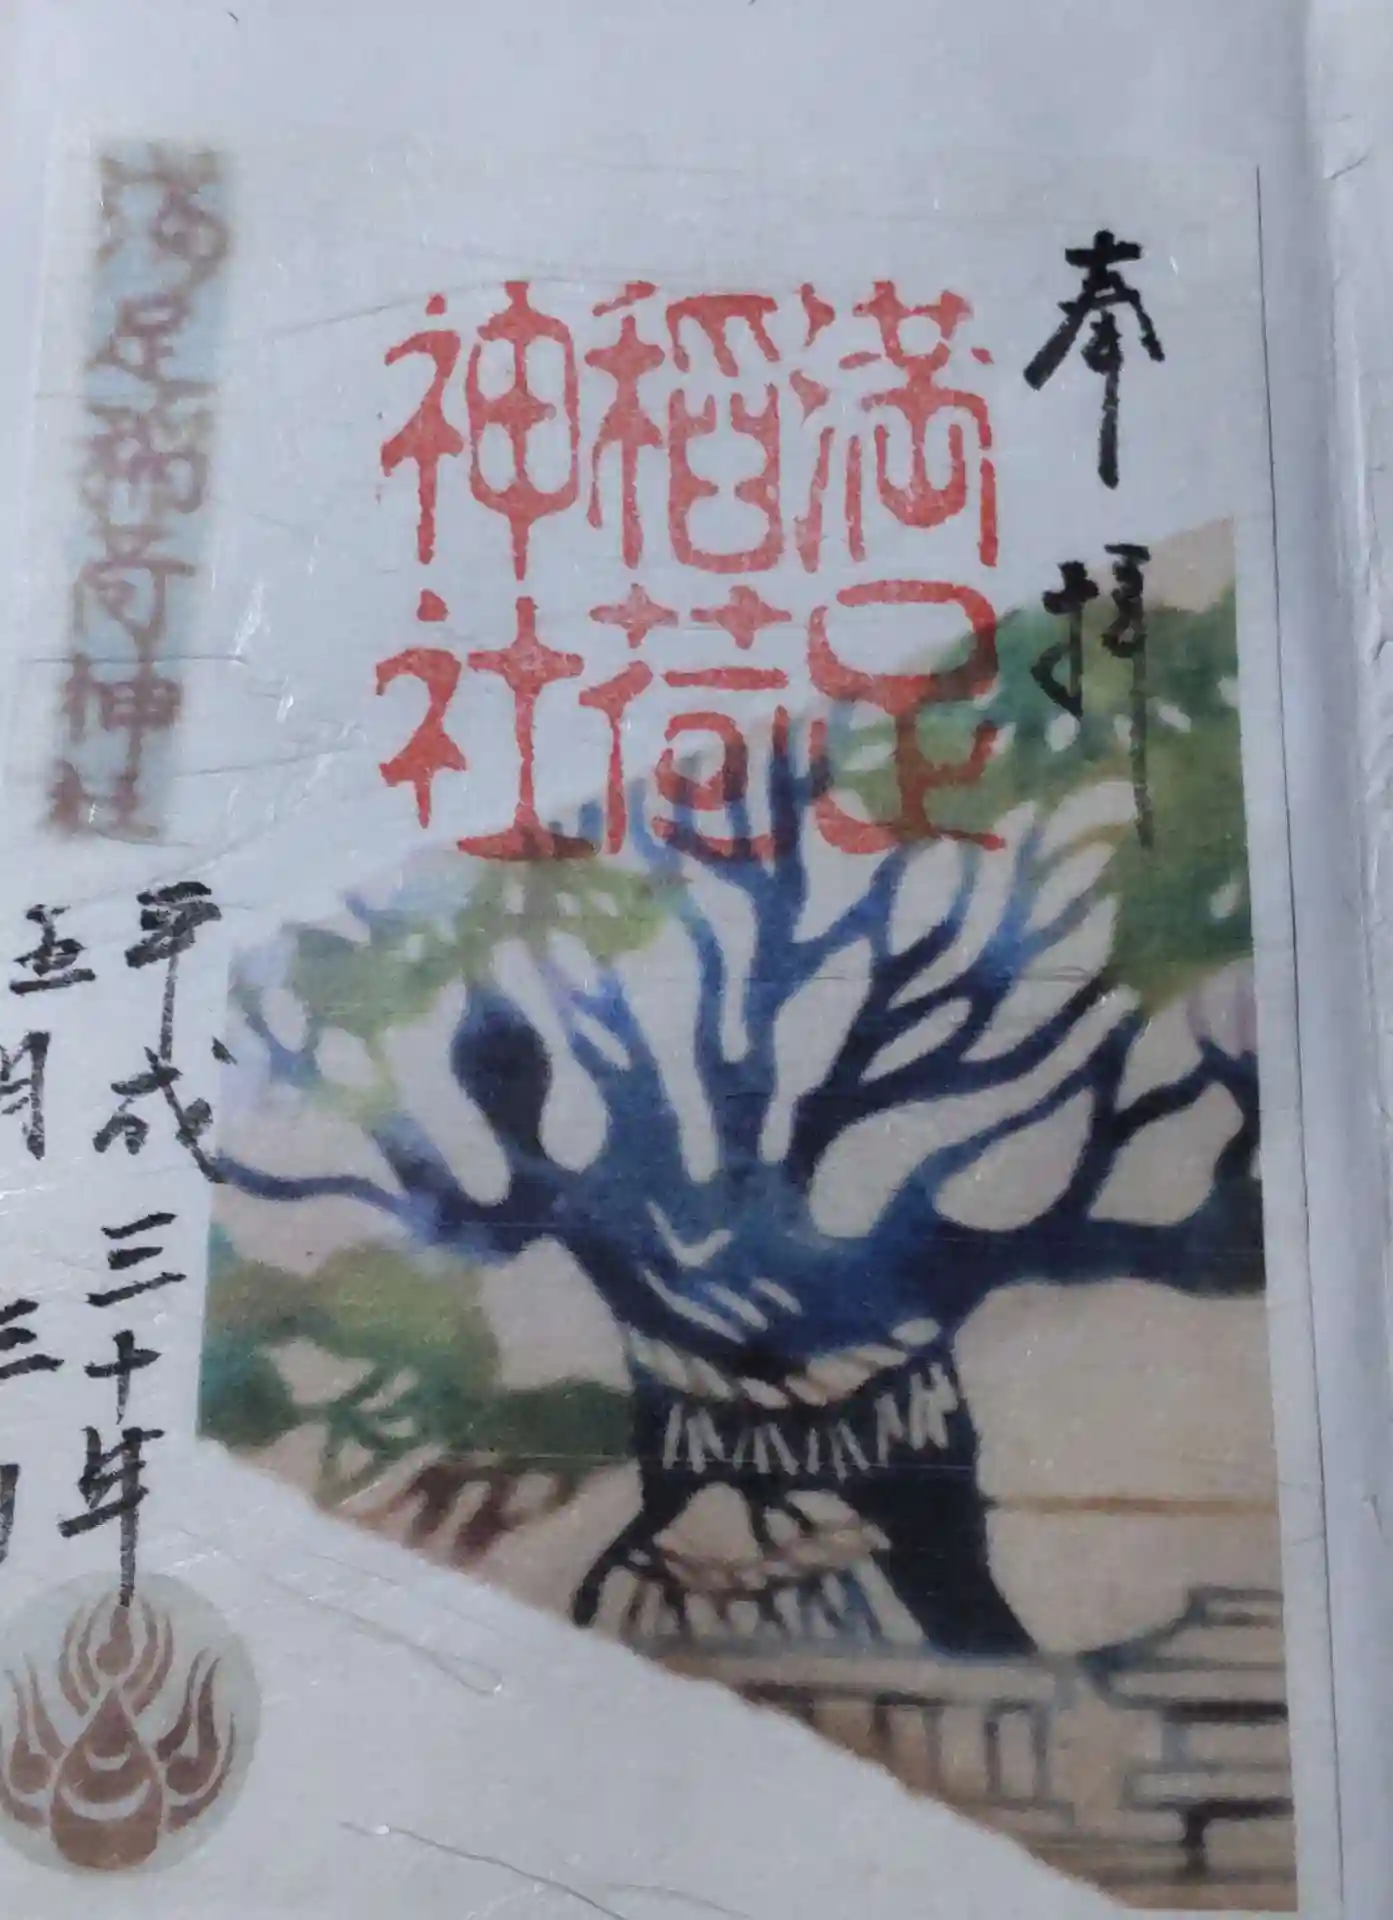 奉拝
満足
稲荷
神社
満足稲荷神社
平成三十年
五月三